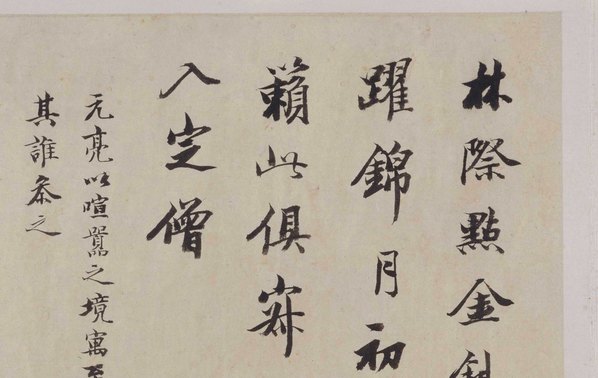 林際點金
躍錦月初
籟此俱寂
入定僧
元亮以喧囂之境寓至
其誰參之